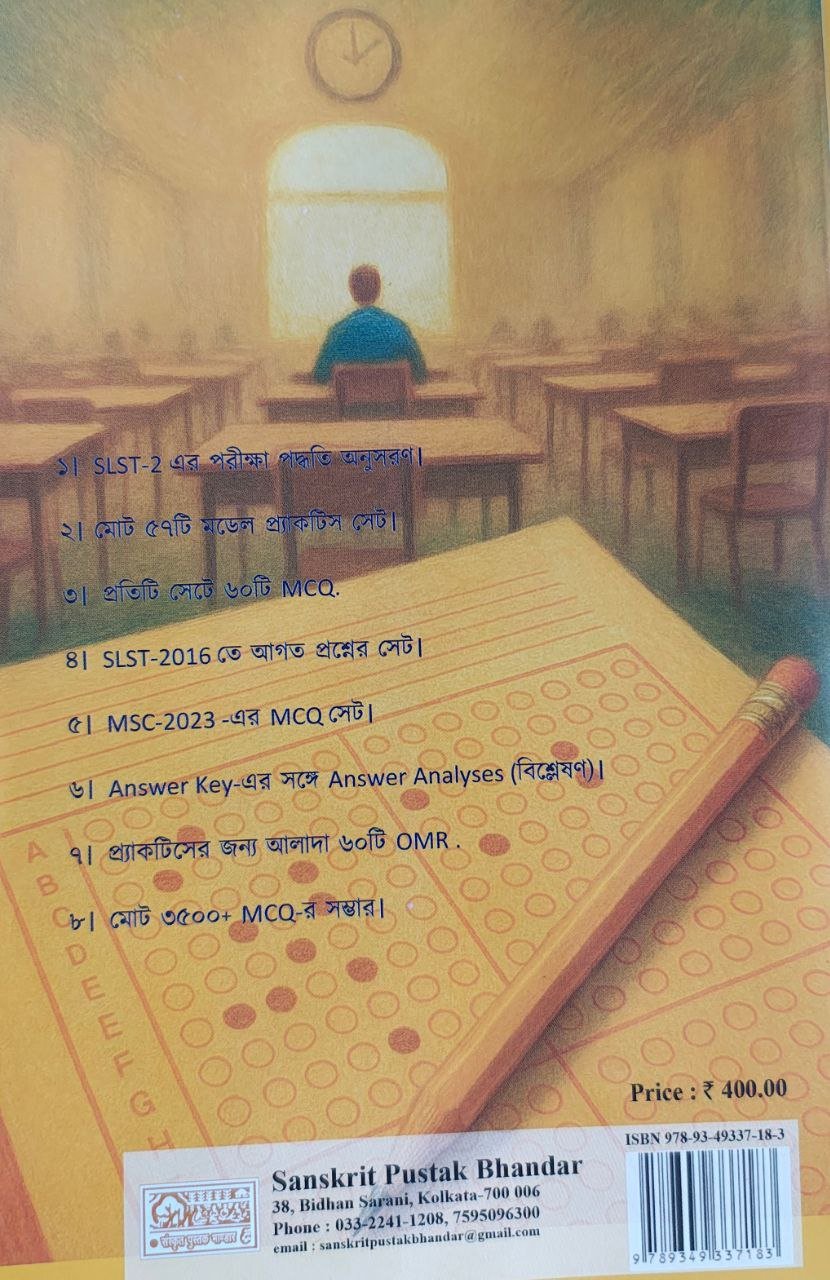 ১| SLST-2 এর পরীক্ষা পদ্ধতি অনুসরণ|
২| মোট ৫৭টি মডেল প্র্যাকটিস সেট|
৩| প্রতিটি সেটে ৬০টি MCQ.
৪| SLST-2016 তে আগত প্রশ্নের সেট|
৫| MSC-2023 -এর MCQ সেট|
৬| Answer Key-এর সঙ্গে Answer Analyses (বিশ্লেষণ)|
৭| প্র্যাকটিসের জন্য আলাদা ৬০টি OMR .
৮| মোট ৩৫০০+ MCQ-র সম্ভার|
A
B
C
D
E
E
F
G
H
Price : ₹ 400.00
ISBN 978-93-49337-18-3
Sanskrit Pustak Bhandar
38, Bidhan Sarani, Kolkata-700 006
Phone : 033-2241-1208, 7595096300
email : sanskritpustakbhandar@gmail.com
संस्कृत पुस्तक भाण्डार
9 789349 337183